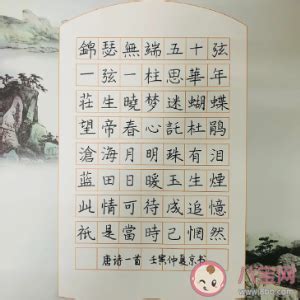 錦瑟無端五十弦
一弦一柱思華年
莊生曉梦迷蝴蝶
望帝春心託杜鹃
滄海月明珠有泪
蓝田日暖玉生煙
此情可待成追憶
祇是當時已惘然
唐诗一首 壬寅仲夏京书
八宝网